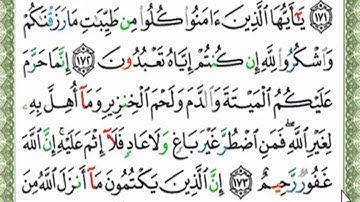 ﴿١٧١﴾ يَٰٓأَيُّهَا ٱلَّذِينَ ءَامَنُوا۟ كُلُوا۟ مِن طَيِّبَٰتِ مَا رَزَقْنَٰكُمْ
وَٱشْكُرُوا۟ لِلَّهِ إِن كُنتُمْ إِيَّاهُ تَعْبُدُونَ ﴿١٧٢﴾ إِنَّمَا حَرَّمَ
عَلَيْكُمُ ٱلْمَيْتَةَ وَٱلدَّمَ وَلَحْمَ ٱلْخِنزِيرِ وَمَآ أُهِلَّ بِهِۦ
لِغَيْرِ ٱللَّهِ ۖ فَمَنِ ٱضْطُرَّ غَيْرَ بَاغٍ وَلَا عَادٍ فَلَآ إِثْمَ عَلَيْهِ ۚ إِنَّ ٱللَّهَ
غَفُورٌ رَّحِيمٌ ﴿١٧٣﴾ إِنَّ ٱلَّذِينَ يَكْتُمُونَ مَآ أَنزَلَ ٱللَّهُ مِنَ